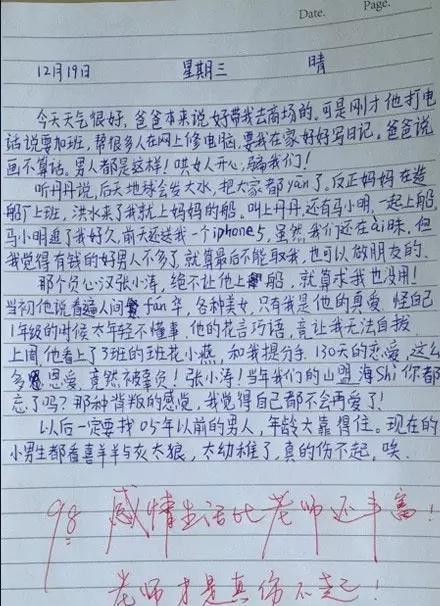 Date.
Page.
12月19日 星期三 晴
今天天气很好，爸爸本来说好带我去商场的。可是刚才他打电
话说要加班，帮很多人在网上修电脑，要我在家好好写日记。爸爸说
画不算话。男人都是这样！哄女人开心，骗我们！
听丹丹说，后天地球会发大水，把大家都yān了。反正妈妈在造
船厂上班，洪水来了我就上妈妈的船。叫上丹丹，还有马小明，一起上船，
马小明追了我好久，前天还送我一个iphone5，虽然我们还在ai昧，但
我觉得有钱的好男人不多了，就算最后不能取我，也可以做朋友的。
那个负心汉张小涛，绝不让他上船，就算求我也没用！
当初他说看遍人间fán华，各种美女，只有我是他的真爱，怪自己
1年级的时候太年轻不懂事，他的花言巧语，竟让我无法自拔
上周，他看上了3班的班花小燕，和我提分手，130天的恋爱，这么
多恩爱，竟然被辜负！张小涛！当年我们的山盟海Shi你都
忘了吗？那种背叛的感觉，我觉得自己都不会再爱了！
以后一定要找05年以前的男人，年龄大靠得住。现在的
小男生都看喜羊羊与灰太狼，太幼稚了，真的伤不起，唉。
98 感情生活比老师还丰富！
老师才是真伤不起！